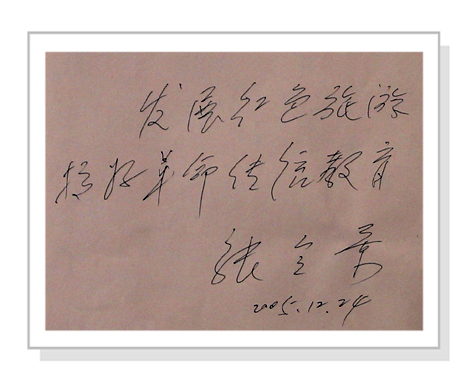 发展红色旅游
搞好革命传信教育
张立
2005.12.24